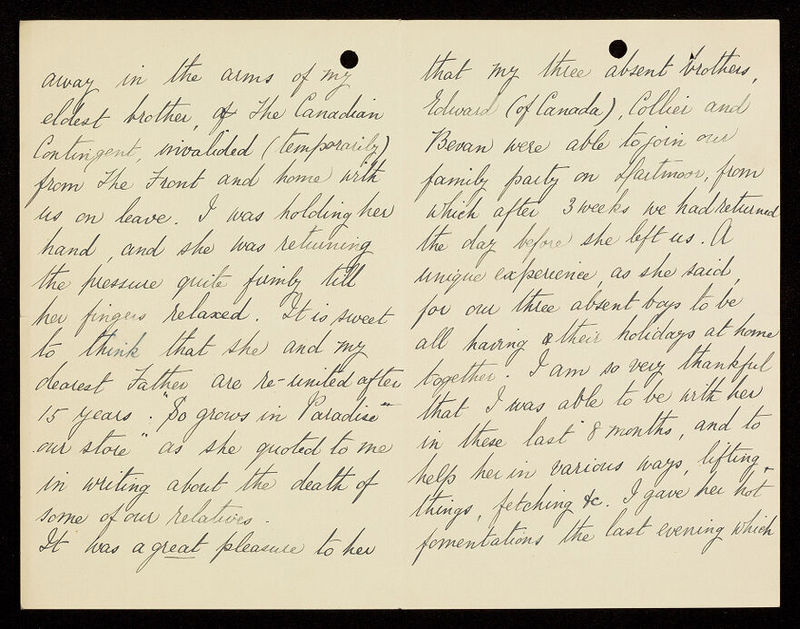 away in the arms of my
eldest brother, of the Canadian
Contingent, invalided (temporarily)
from The Front and home with
us on leave. I was holding her
hand, and she was returning
the pressure quite firmly till
her fingers relaxed. It is sweet
to think that she and my
dearest Father are re-united after
15 years. "So grows in Paradise
our store" as she quoted to me
in writing about the death of
some of our relatives.
It was a great pleasure to her
that my three absent brothers,
Edward (of Canada), Collier and
Bevan were able to join our
family party on Dartmoor, from
which after 3 weeks we had returned
the day before she left us. A
unique experience, as she said,
for our three absent boys to be
all having their holidays at home
together. I am so very thankful
that I was able to be with her
in these last 8 months, and to
help her in various ways, lifting
things, fetching &c. I gave her hot
fomentations the last evening which